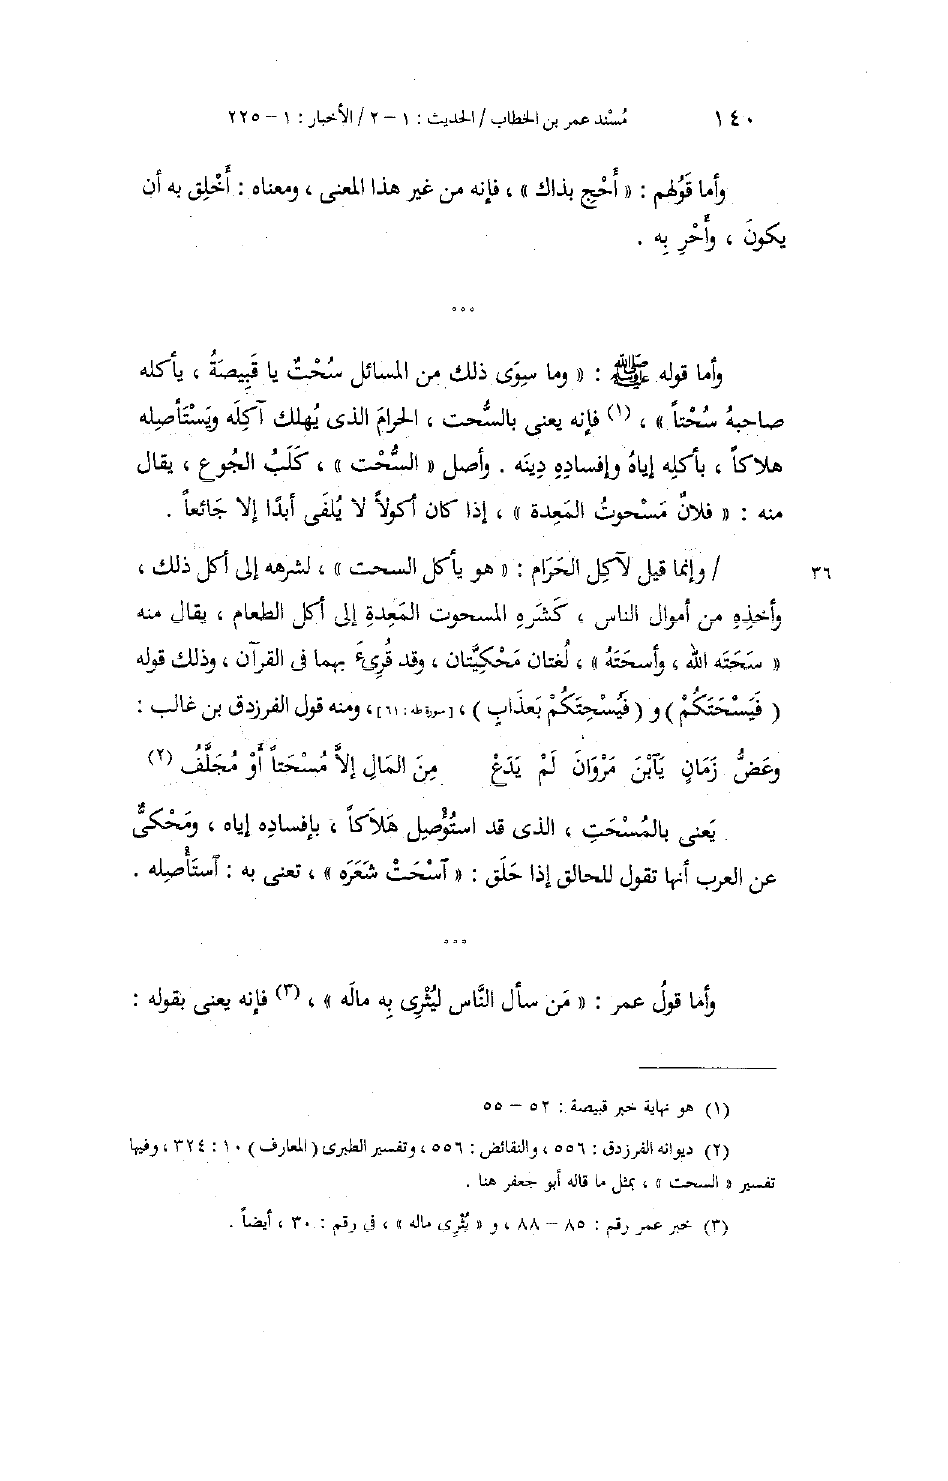 ١٤٠ مُسْند عمر بن الخطاب / الحديث : ١ – ٢ / الأخبار : ١ – ٢٢٥
وأما قَوْلهم : « أَحْجِ بذاك » ، فإنه من غير هذا المعنى ، ومعناه : أَخْلِق به أن
يكونَ ، وأَحْرِ بِه .
°°°
وأما قوله ﷺ : « وما سِوَى ذلك من المسائل سُحْتٌ يا قَبِيصَةُ ، يأكله
صاحبهُ سُحْتاً » ، (١) فإنه يعنى بالسُّحت ، الحرامَ الذى يُهلك آكِلَه ويَسْتَأصِله
هلاكاً ، بأكلِه إياهُ وإفسادِهِ دِينَه . وأصل « السُّحْت » ، كَلَبُ الجُوع ، يقال
منه : « فلانٌ مَسْحوتُ المَعِدة » ، إذا كان أكولاً لا يُلفَى أبدًا إلا جَائعاً .
/ وإنما قيل لآكِل الحَرَام : « هو يأكل السحت » ، لشرهه إلى أكل ذلك ، ٣٦
وأخذِهِ من أموال الناس ، كَشَرَهِ المسحوت المَعِدةِ إلى أكل الطعام ، يقال منه
« سَحَتَه الله ، وأسحَتَهُ » ، لُغتان مَحْكِيَّتان ، وقد قُرِئَ بهما فى القرآن ، وذلك قوله
( فَيَسْحَتَكُمْ ) و ( فَيُسْحِتَكُمْ بَعذَابٍ ) ، [سورة طه : ٦١] ، ومنه قول الفرزدق بن غالب :
وعَضُّ زَمَانٍ يَآبْنَ مَرْوَانَ لَمْ يَدَعْ مِنَ المَالِ إلاَّ مُسْحَتاً أَوْ مُجَلَّفُ (٢)
يَعنى بالمُسْحَتِ ، الذى قد استُؤْصِل هَلاَكاً ، بإفساده إياه ، ومَحْكىٌّ
عن العرب أنها تقول للحالق إذا حَلَق : « آسْحَتْ شَعَرَه » ، تعنى به : آستَأْصِله .
°°°
وأما قولُ عمر : « مَن سأل النَّاس ليُثْرِى بِه مالَه » ، (٣) فإنه يعنى بقوله :
(١) هو نهاية خبر قبيصة : ٥٢ – ٥٥
(٢) ديوانه الفرزدق : ٥٥٦ ، والنقائض : ٥٥٦ ، وتفسير الطبرى ( المعارف ) ١٠ : ٣٢٤ ، وفيها
تفسير « السحت » ، بمثل ما قاله أبو جعفر هنا .
(٣) خبر عمر رقم : ٨٥ – ٨٨ ، و « يُثْرِى ماله » ، فى رقم : ٣٠ ، أيضاً .